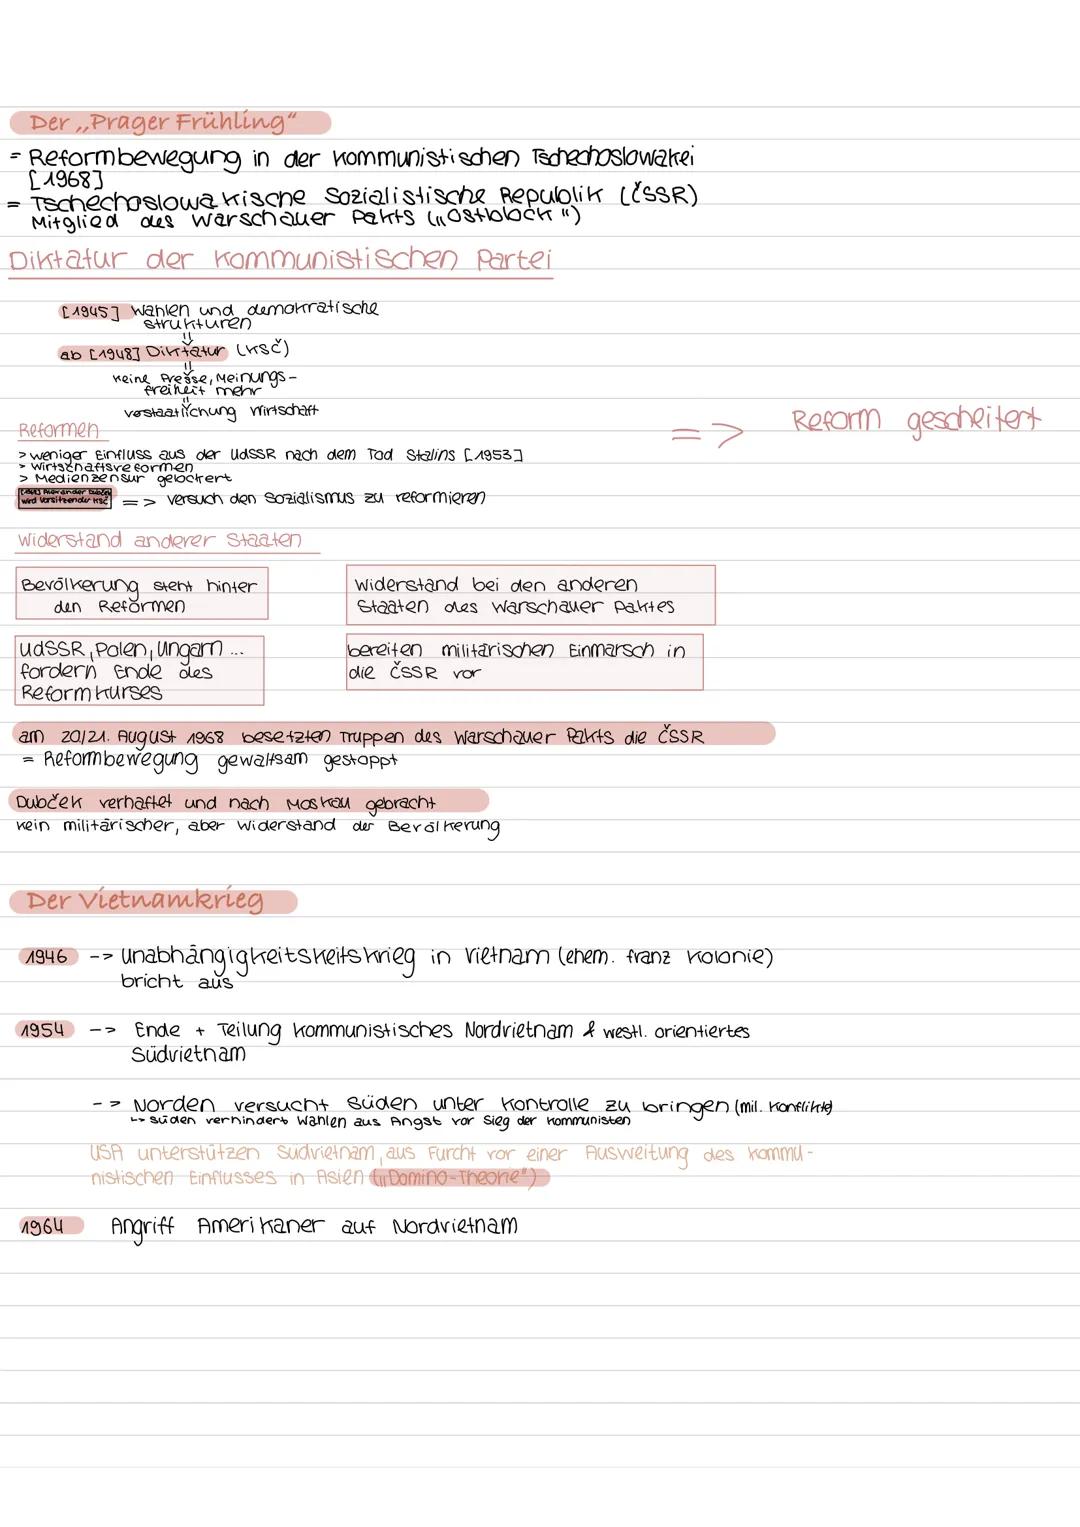 Der „Prager Frühling"
= Reformbewegung in der kommunistischen Tschechoslowakei
[1968]
= Tschechoslowakische Sozialistische Republik (ČSSR)
Mitglied des Warschauer Pakts („Ostblock")
Diktatur der kommunistischen Partei
[1945] Wahlen und demokratische
strukturen
ab [1948] Diktatur (KSČ)
keine Presse, Meinungs-
freiheit mehr
verstaatlichung Wirtschaft
=> Reform gescheitert
Reformen
> weniger Einfluss aus der UdSSR nach dem Tod Stalins [1953]
> Wirtschaftsreformen
> Medienzensur gelockert
[1968] Alexander Dubček
wird Vorsitzender KSČ => Versuch den Sozialismus zu reformieren
Widerstand anderer Staaten
Bevölkerung steht hinter
den Reformen
Widerstand bei den anderen
Staaten des Warschauer Paktes
UdSSR, Polen, Ungarn ...
fordern Ende des
Reformkurses
bereiten militärischen Einmarsch in
die ČSSR vor
am 20/21. August 1968 besetzten Truppen des Warschauer Pakts die ČSSR
= Reformbewegung gewaltsam gestoppt
Dubček verhaftet und nach Moskau gebracht
kein militärischer, aber Widerstand der Bevölkerung
Der Vietnamkrieg
1946 --> Unabhängigkeitskeitskrieg in Vietnam (ehem. franz Kolonie)
bricht aus
1954 --> Ende + Teilung kommunistisches Nordvietnam & westl. orientiertes
Südvietnam
--> Norden versucht Süden unter Kontrolle zu bringen (mil. Konflikte)
↳ Süden verhindert Wahlen aus Angst vor Sieg der Kommunisten
USA unterstützen Südvietnam, aus Furcht vor einer Ausweitung des kommu-
nistischen Einflusses in Asien („Domino-Theorie")
1964 Angriff Amerikaner auf Nordvietnam